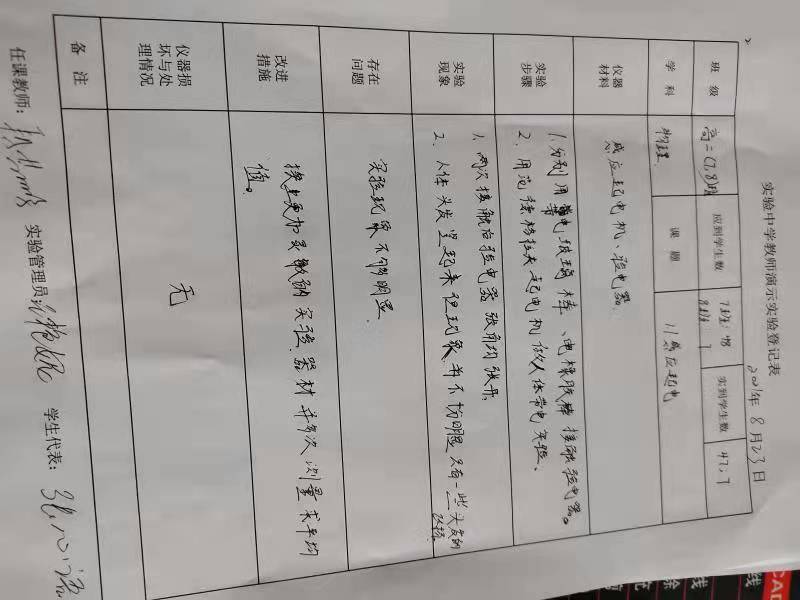 实验中学教师演示实验登记表
2021年8月23日
班级 高二(7,8)班 应到学生数 7班:48 8班: 7 实到学生数 47,7
学科 物理 课题 1.1 感应起电
仪器材料 感应起电机、验电器
实验步骤 1、分别用带电玻璃棒、电橡胶棒接触验电器。
2、用范德格拉夫起电机做人体带电实验、
实验现象 1、两次接触后验电器张角均张开
2、人体头发竖起来但现象并不怕明显只有一些头发的
存在问题 实验现象不够明显
改进措施 换上更加灵敏的实验器材并多次测量求平均
值。
仪器损坏与处理情况 无
备注
任课教师: 实验管理员: 学生代表:
线
线
余
充
CAD